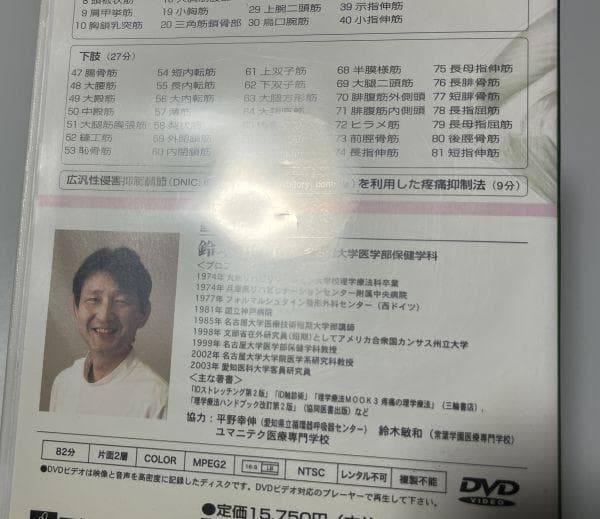 9 肩甲挙筋
10 胸鎖乳突筋
19 小胸筋
20 三角筋鎖骨部
29 上腕二頭筋
30 烏口腕筋
39 示指伸筋
40 小指伸筋
下肢（27分）
47 腸骨筋
48 大腰筋
49 大殿筋
50 中殿筋
51 大腿筋膜張筋
52 縫工筋
53 恥骨筋
54 短内転筋
55 長内転筋
56 大内転筋
57 薄筋
58
59 外閉鎖筋
60 内閉鎖筋
61 上双子筋
62 下双子筋
63 大腿方形筋
64
68 半膜様筋
69 大腿二頭筋
70 腓腹筋外側頭
71 腓腹筋内側頭
72 ヒラメ筋
73 前脛骨筋
74 長指伸筋
75 長母指伸筋
76 長腓骨筋
77 短腓骨筋
78 長指屈筋
79 長母指屈筋
80 後脛骨筋
81 短指伸筋
広汎性侵害抑制調節（DNIC: を利用した疼痛抑制法（9分）
鈴 大学医学部保健学科
＜プロフ
1974年 大学校理学療法科卒業
1974年 兵庫県リハビリテーションセンター附属中央病院
1977年 フォルマルシュタイン整形外科センター（西ドイツ）
1981年 国立神戸病院
1985年 名古屋大学医療技術短期大学部講師
1998年 文部省在外研究員（短期）としてアメリカ合衆国カンサス州立大学
1999年 名古屋大学医学部保健学科教授
2002年 名古屋大学大学院医学系研究科教授
2003年 愛知医科大学客員研究員
＜主な著書＞
「IDストレッチング第2版」「ID触診術」「理学療法MOOK3 疼痛の理学療法」（三輪書店）、
「理学療法ハンドブック改訂第2版」（協同医書出版）など
協力：平野幸伸（愛知県立循環器呼吸器センター） 鈴木敏和（常葉学園医療専門学校）
ユマニテク医療専門学校
82分 片面2層 COLOR MPEG2 16:9 LB NTSC レンタル不可 複製不能
DVD
VIDEO
●DVDビデオは映像と音声を高密度に記録したディスクです。DVDビデオ対応のプレーヤーで再生して下さい。
●定価15,750円